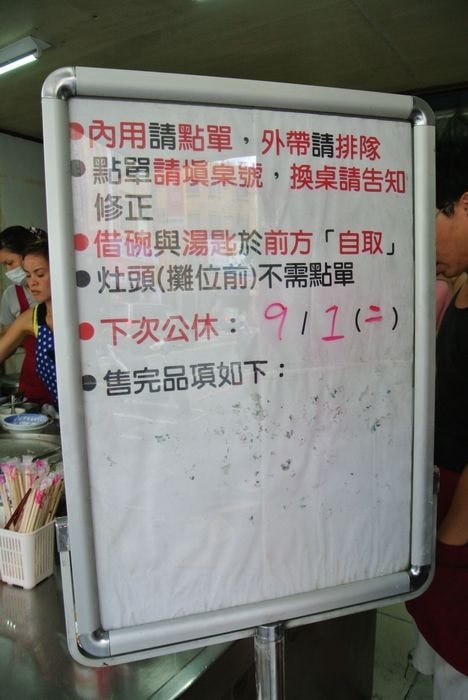 ●內用請點單，外帶請排隊
●點單請填桌號，換桌請告知
修正
●借碗與湯匙於前方「自取」
●灶頭(攤位前)不需點單
●下次公休： 9 / 1 (二)
●售完品項如下：